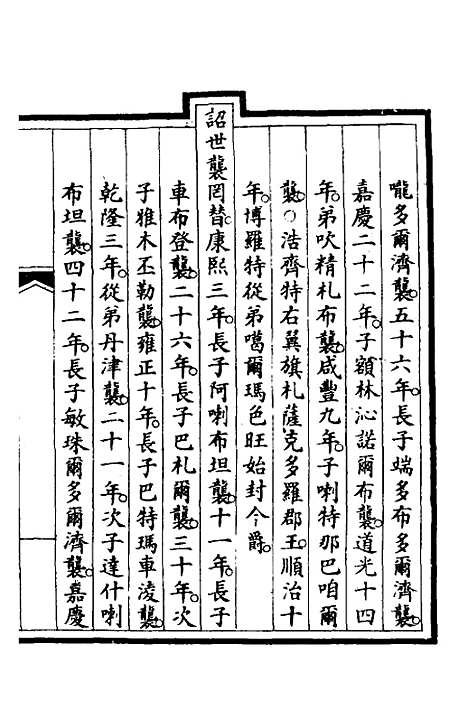 嚨多爾濟襲。五十六年。長子端多布多爾濟襲。
嘉慶二十二年。子額林沁諾爾布襲。道光十四
年。弟吹精札布襲。咸豐九年。子喇特那巴咱爾
襲。○浩齊特右翼旗札薩克多羅郡王。順治十
年。博羅特從弟噶爾瑪色旺始封今爵。
詔世襲罔替。康熙三年。長子阿喇布坦襲。十一年。長子
車布登襲。二十六年。長子巴札爾襲。三十年。次
子雅木丕勒襲。雍正十年。長子巴特瑪車淩襲。
乾隆三年。從弟丹津襲。二十一年。次子達什喇
布坦襲。四十二年。長子敏珠爾多爾濟襲。嘉慶